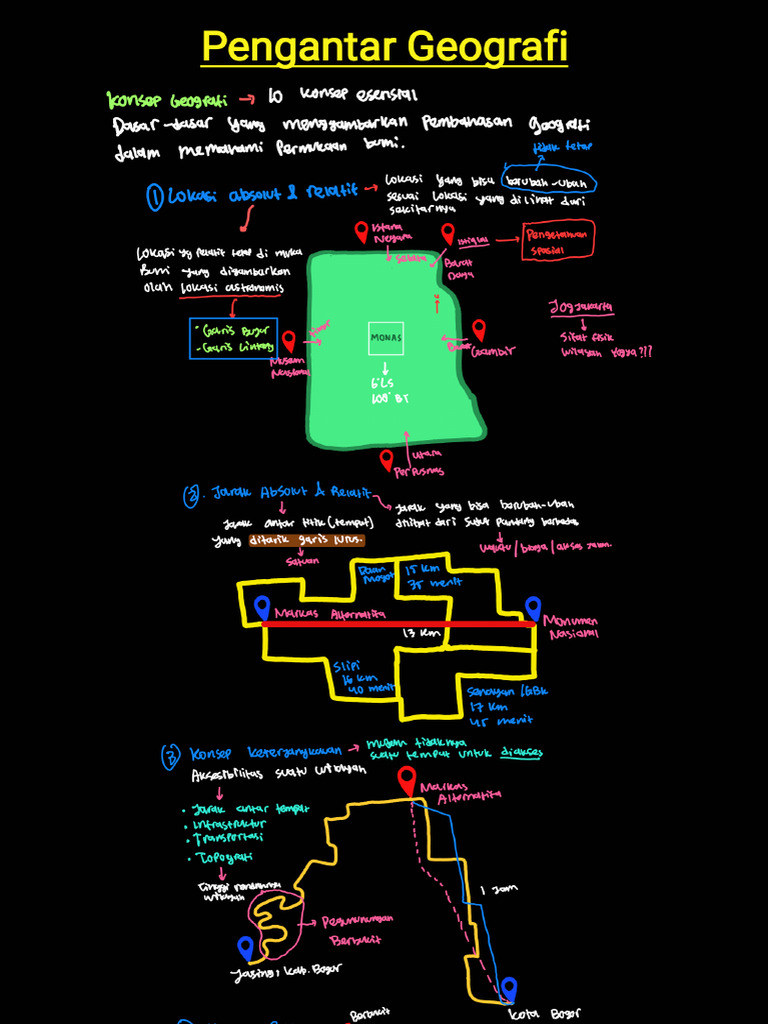 Pengantar Geografi
Konsep Geografi → 10 konsep esensial
Dasar-dasar yang menggambarkan pembahasan geografi
dalam memahami permukaan bumi.
tidak tetap
① Lokasi absolut & relatif → Lokasi yang bisa berubah-ubah
sesuai lokasi yang dilihat dari
sekitarnya
Lokasi yg relatif tetap di muka
Bumi yang digambarkan
oleh lokasi astronomis
- Garis Bujur
- Garis Lintang
Istana
Negara
Selatan
Istiqlal → Pengetahuan
spasial
Barat
Daya
Timur
Museum
Nasional
MONAS
6°LS
108° BT
Barat
Gambir
Utara
Perpusnas
Jogjakarta
Sifat fisik
wilayah Yogya???
②. Jarak Absolut & Relatif
Jarak antar titik (tempat)
yang ditarik garis lurus.
Satuan
Jarak yang bisa berubah-ubah
dilihat dari sudut pandang berbeda
waktu/biaya/akses jalan.
Daan
Mogot
15 km
35 menit
Markas Alternatifa
13 km
Monumen
Nasional
Slipi
16 km
40 menit
Senayan/GBK
17 km
45 menit
③ Konsep Keterjangkauan → mudah tidaknya
suatu tempat untuk diakses
Aksesibilitas suatu wilayah
• Jarak antar tempat
• Infrastruktur
• Transportasi
• Topografi
tinggi rendahnya
wilayah
Markas
Alternatifa
1 Jam
Pegunungan
Berbukit
Jasinga, Kab. Bogor
Kota Bogor
Berbukit